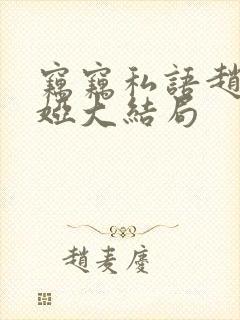 竊竊私語趙
婭大結局
趙麦慶